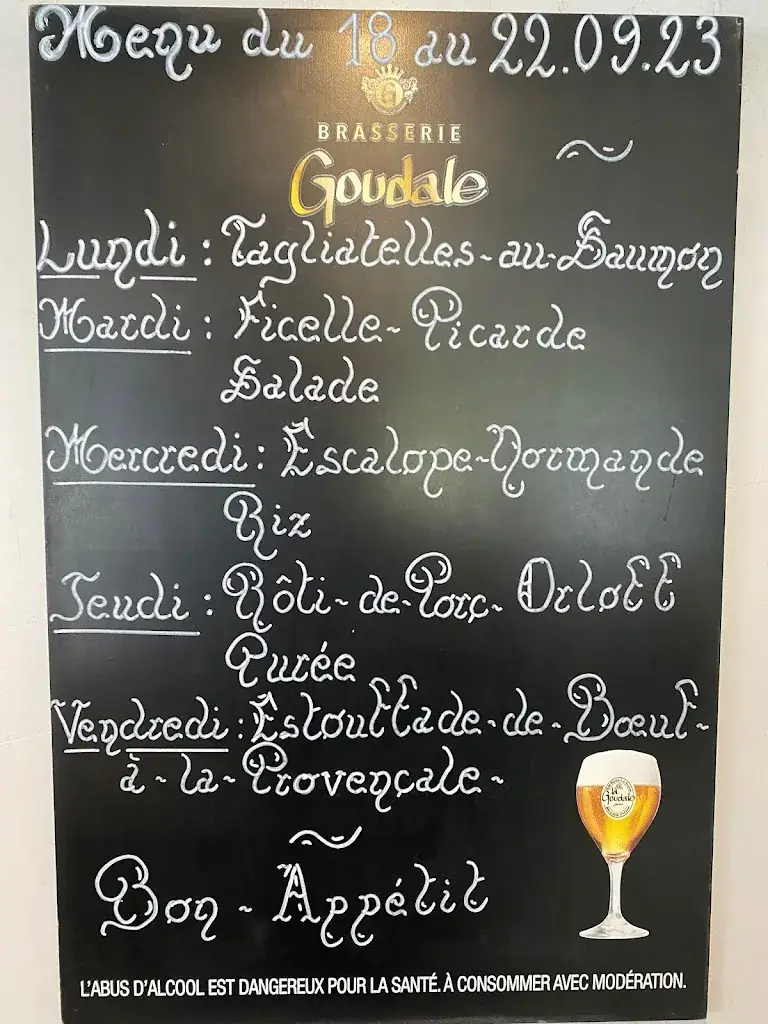 Menu du 18 au 22.09.23
BRASSERIE
Goudale
Lundi : Tagliatelles-au-Saumon
Mardi : Ficelle-Picarde
Salade
Mercredi : Escalope-Normande
Riz
Jeudi : Rôti-de-Porc-Orloff
Purée
Vendredi : Estouffade-de-Bœuf-
à-la-Provençale-
la Goudale
Bon-Appétit
L'ABUS D'ALCOOL EST DANGEREUX POUR LA SANTÉ. À CONSOMMER AVEC MODÉRATION.